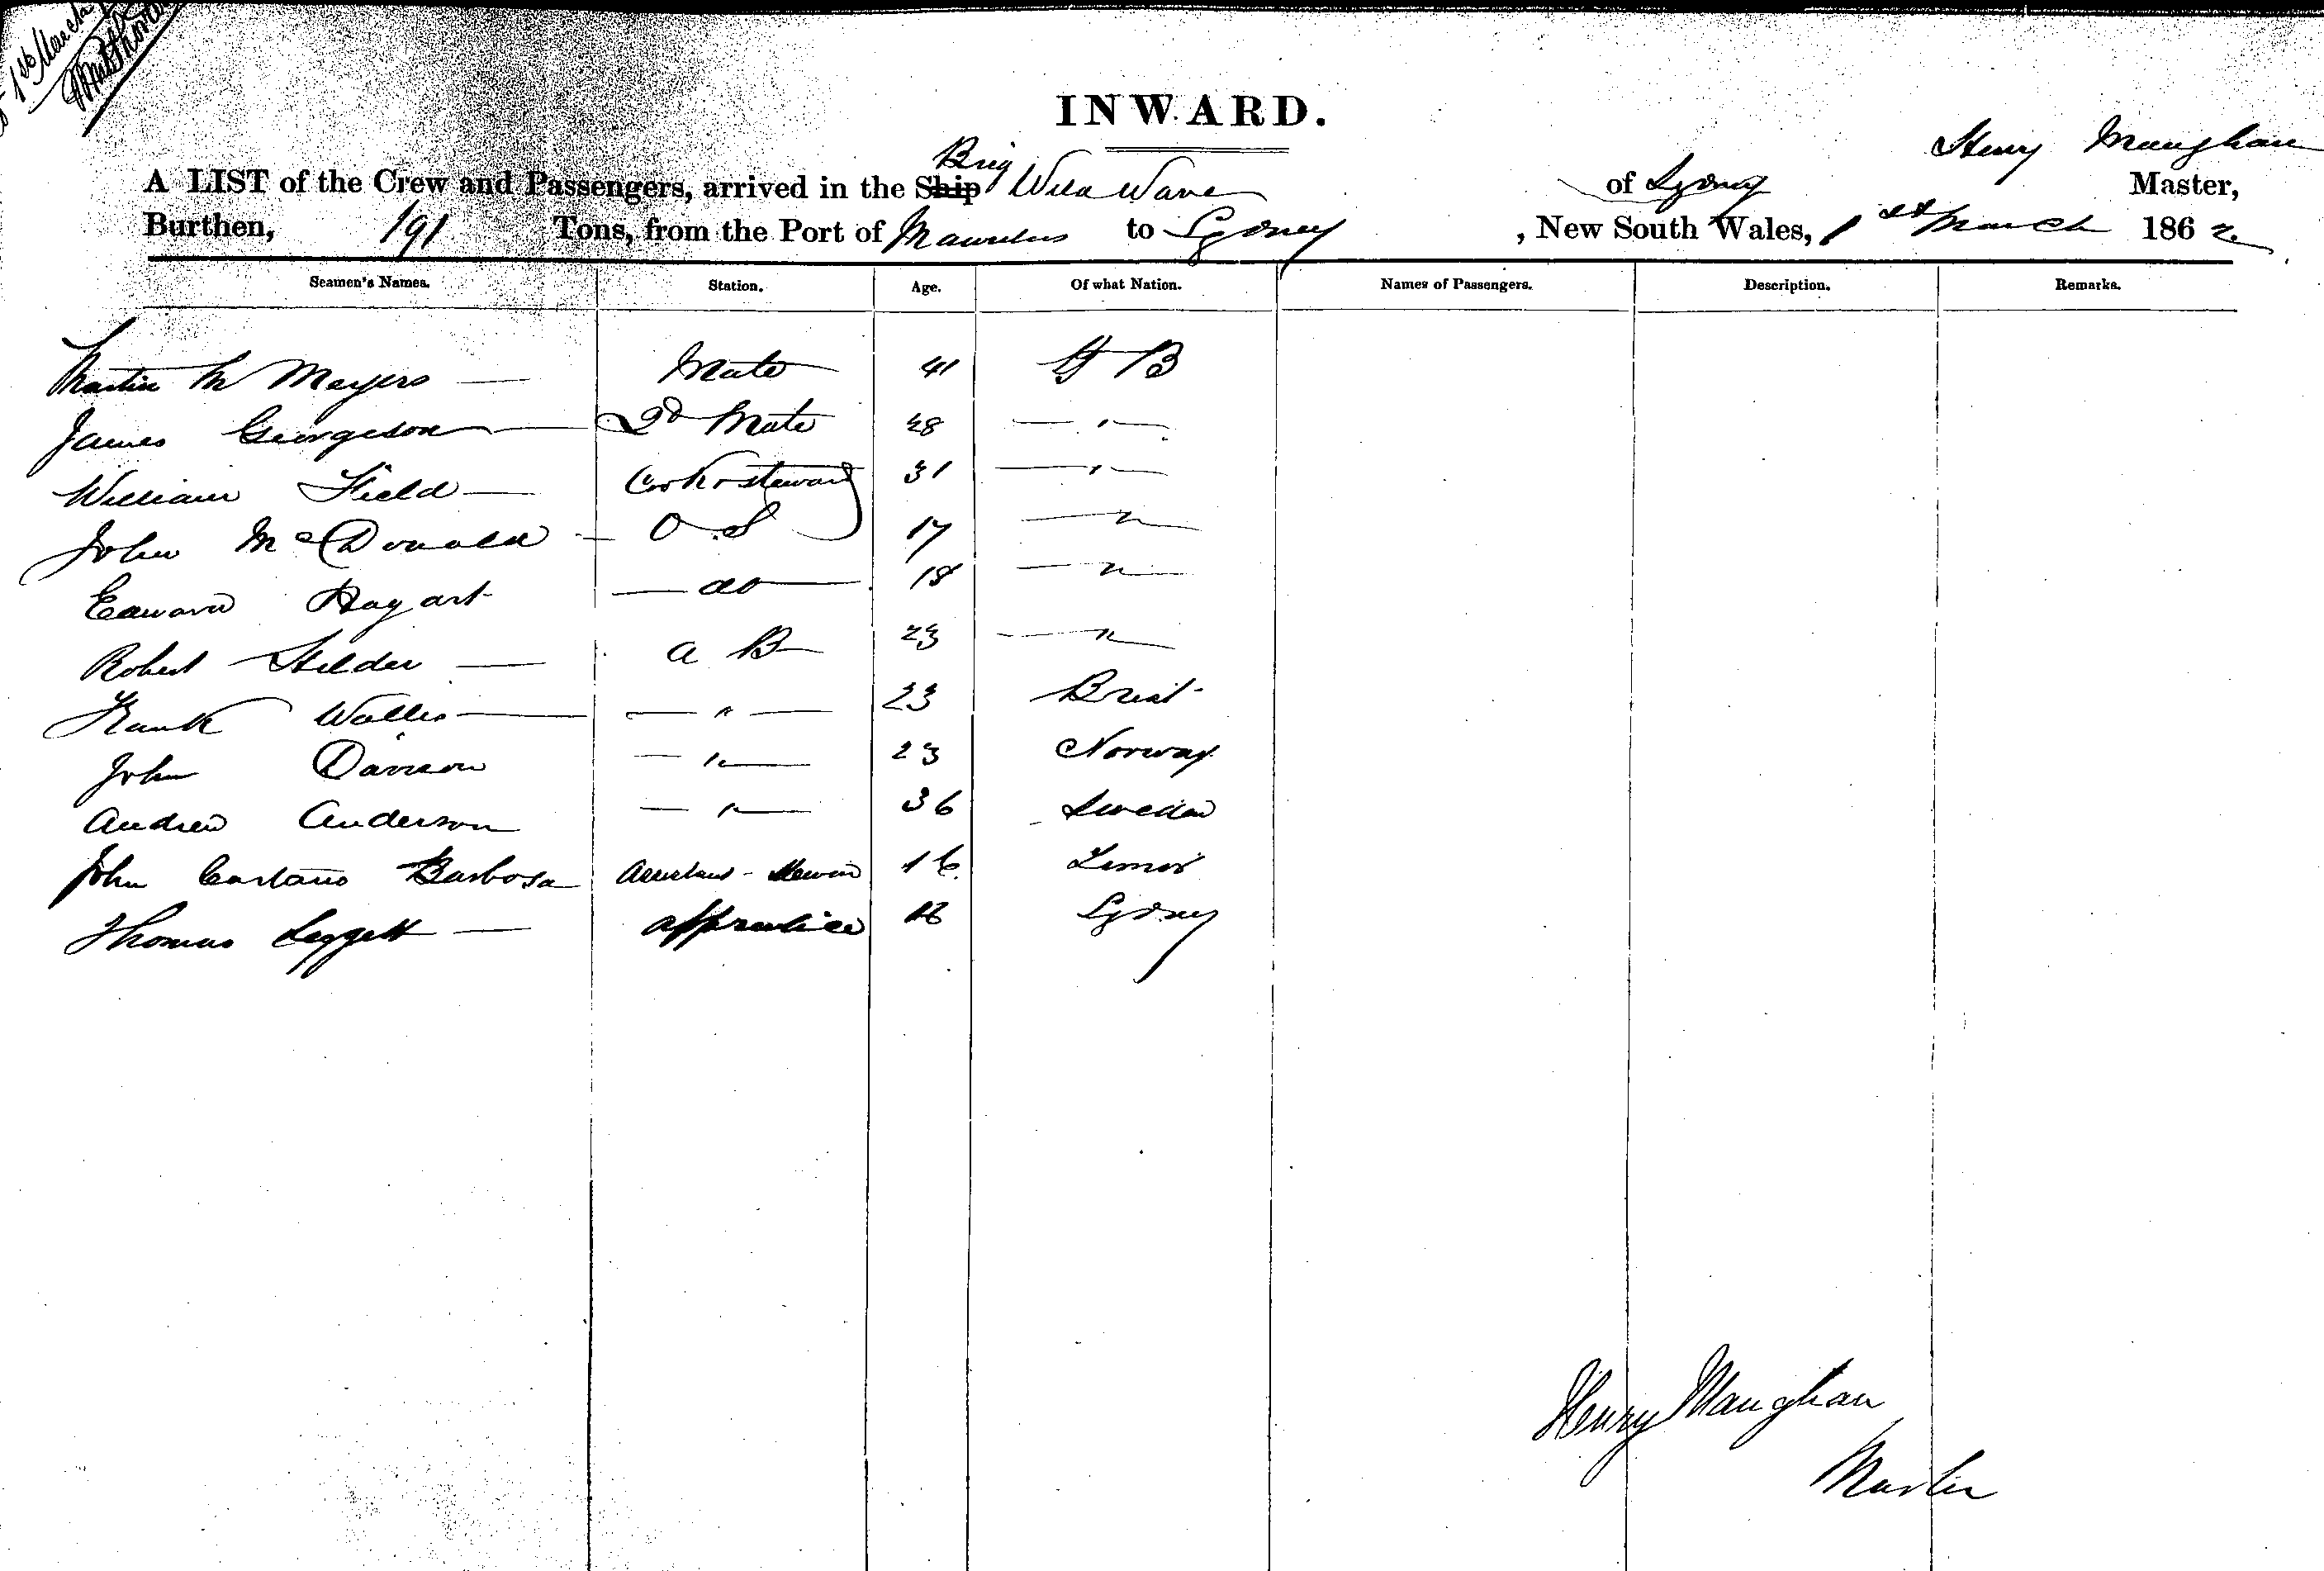 1st March
INWARD.
A LIST of the Crew and Passengers, arrived in the Ship Brig Wild Wave of Sydney Henry Maughan Master,
Burthen, 191 Tons, from the Port of Mauritius to Sydney, New South Wales, 1st March 1862
Seamen's Names. Station. Age. Of what Nation. Names of Passengers. Description. Remarks.
Martin M Mayers — Mate 41 G B
James Georgeson — 2d Mate 28 — " —
William Field — Cook & Steward 31 — " —
John McDonald — O.S 17 — " —
Edward Hagart — do — 18 — " —
Robert Hilder — A B 23 — " —
Frank Wallis — — " — 23 Brest
John Davison — " — 23 Norway
Andrew Anderson — " — 36 Sweden
John Caetano Barbosa Assistant Steward 16
Thomas Leggett — apprentice Sydney
Henry Maughan
Master